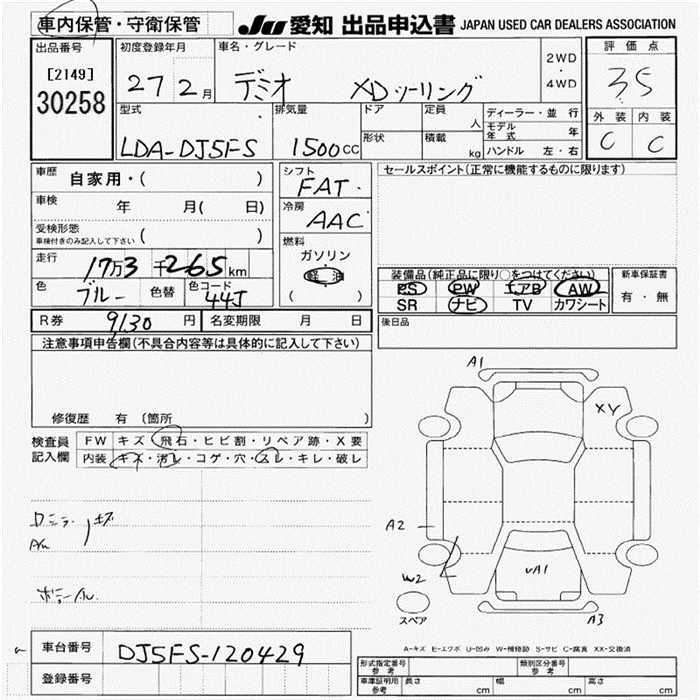 車内保管・守衛保管 JU 愛知 出品申込書 JAPAN USED CAR DEALERS ASSOCIATION
出品番号 初度登録年月 車名・グレード 2WD・4WD 評価点
[2149] 27 2月 デミオ XDツーリング 3.5
30258
型式 排気量 ドア 定員 人 ディーラー・並行 外装 内装
LDA-DJ5FS 1500cc 形状 積載 kg モデル年式 年 C C
ハンドル 左・右
車歴 自家用・( ) シフト FAT セールスポイント(正常に機能するものに限ります)
車検 年 月( 日) 冷房 AAC
受検形態 ( )
車検付きのみ記入して下さい
走行 17万3千265km 燃料 ガソリン 軽油 ( )
装備品(純正品に限り○をつけてください) 新車保証書
PS PW エアB AW 有・無
SR ナビ TV カワシート
色 ブルー 色替 色コード 44J
R券 9130円 名変期限 月 日 後日品
注意事項申告欄(不具合内容等は具体的に記入して下さい)
修復歴 有(箇所 )
検査員記入欄 FW キズ・飛石・ヒビ割・リペア跡・X要
内装 キズ・汚レ・コゲ・穴・スレ・キレ・破レ
A1
XY
A2
W2
UA1
A3
スペア
キズ
A-キズ E-エクボ U-凹み W-補修跡 S-サビ C-腐食 XX-交換済
車台番号 DJ5FS-120429
登録番号
形式指定番号 参考 類別区分番号 参考
車庫証明用 参考 長さ cm 幅 cm 高さ cm